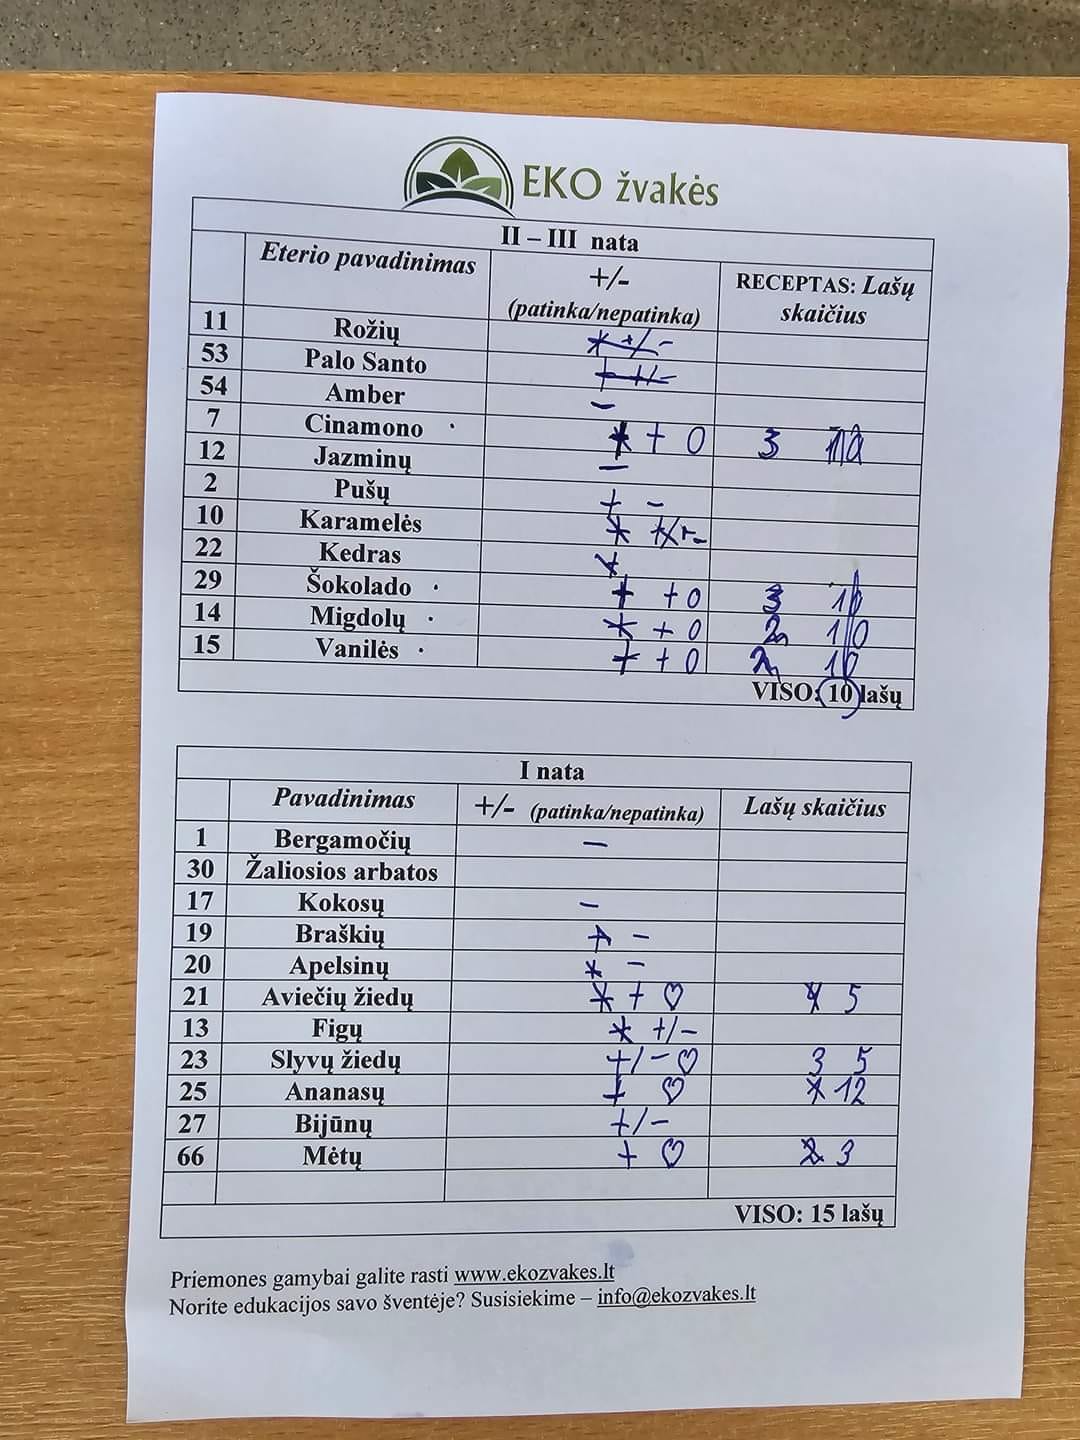 EKO žvakės
II – III nata
Eterio pavadinimas +/- (patinka/nepatinka) RECEPTAS: Lašų skaičius
11 Rožių +/-
53 Palo Santo + +/-
54 Amber -
7 Cinamono + 0 3
12 Jazminų -
2 Pušų + -
10 Karamelės
22 Kedras
29 Šokolado + + 0 3
14 Migdolų + 0 2
15 Vanilės + + 0 2
VISO: 10 lašų
I nata
Pavadinimas +/- (patinka/nepatinka) Lašų skaičius
1 Bergamočių -
30 Žaliosios arbatos
17 Kokosų -
19 Braškių -
20 Apelsinų -
21 Aviečių žiedų + ♡ 5
13 Figų +/-
23 Slyvų žiedų +/- ♡ 3 5
25 Ananasų + ♡ 12
27 Bijūnų +/-
66 Mėtų + ♡ 3
VISO: 15 lašų
Priemones gamybai galite rasti www.ekozvakes.lt
Norite edukacijos savo šventėje? Susisiekime – info@ekozvakes.lt